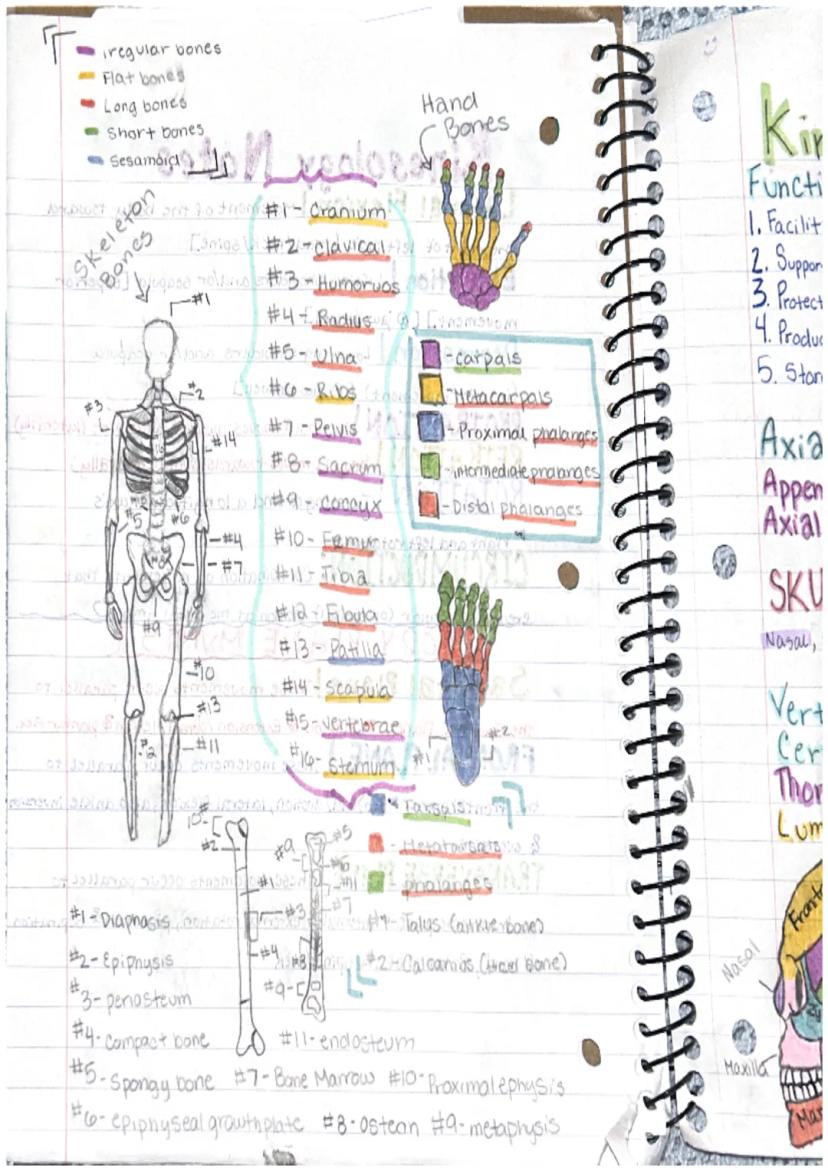 irregular bones
Flat bones
Long bones
Short bones
Sesamoid
Skeleton
Bones
Hand
Bones
#1 - Cranium
#2 - clavical
#3 - Humoruos
#4 - Radius
#5 - Ulna
#6 - Ribs
#7 - Pelvis
#8 - Sacrum
#9 - coccyx
#10 - Femur
#11 - Tibia
#12 - Fibula
#13 - Patilla
#14 - scapula
#15 - vertebrae
#16 - sternum
- carpals
- Metacarpals
- Proximal phalanges
- intermediate phalanges
- Distal phalanges
#1
#2
#3
#14
#5
#6
#4
#7
#9
#10
#13
#2
#11
#1
#2
- Tarsals
- Metatarsals
- phalanges
#1 - Talus (ankle bone)
#2 - Calcanius (Heel bone)
#10
#2
#1
#3
#4
#9
#5
#6
#11
#7
#8
#9
#1 - Diaphasis
#2 - Epiphysis
#3 - periosteum
#4 - compact bone #11 - endosteum
#5 - Spongy bone #7 - Bone Marrow #10 - Proximal ephysis
#6 - epiphyseal growth plate #8 - Ostean #9 - metaphysis
Kin
Functi
1. Facilit
2. Suppor
3. Protect
4. Produc
5. Stor
Axia
Appen
Axial
SKU
Nasal,
Vert
Cer
Thor
Lum
Front
Nasal
Maxilla
Man